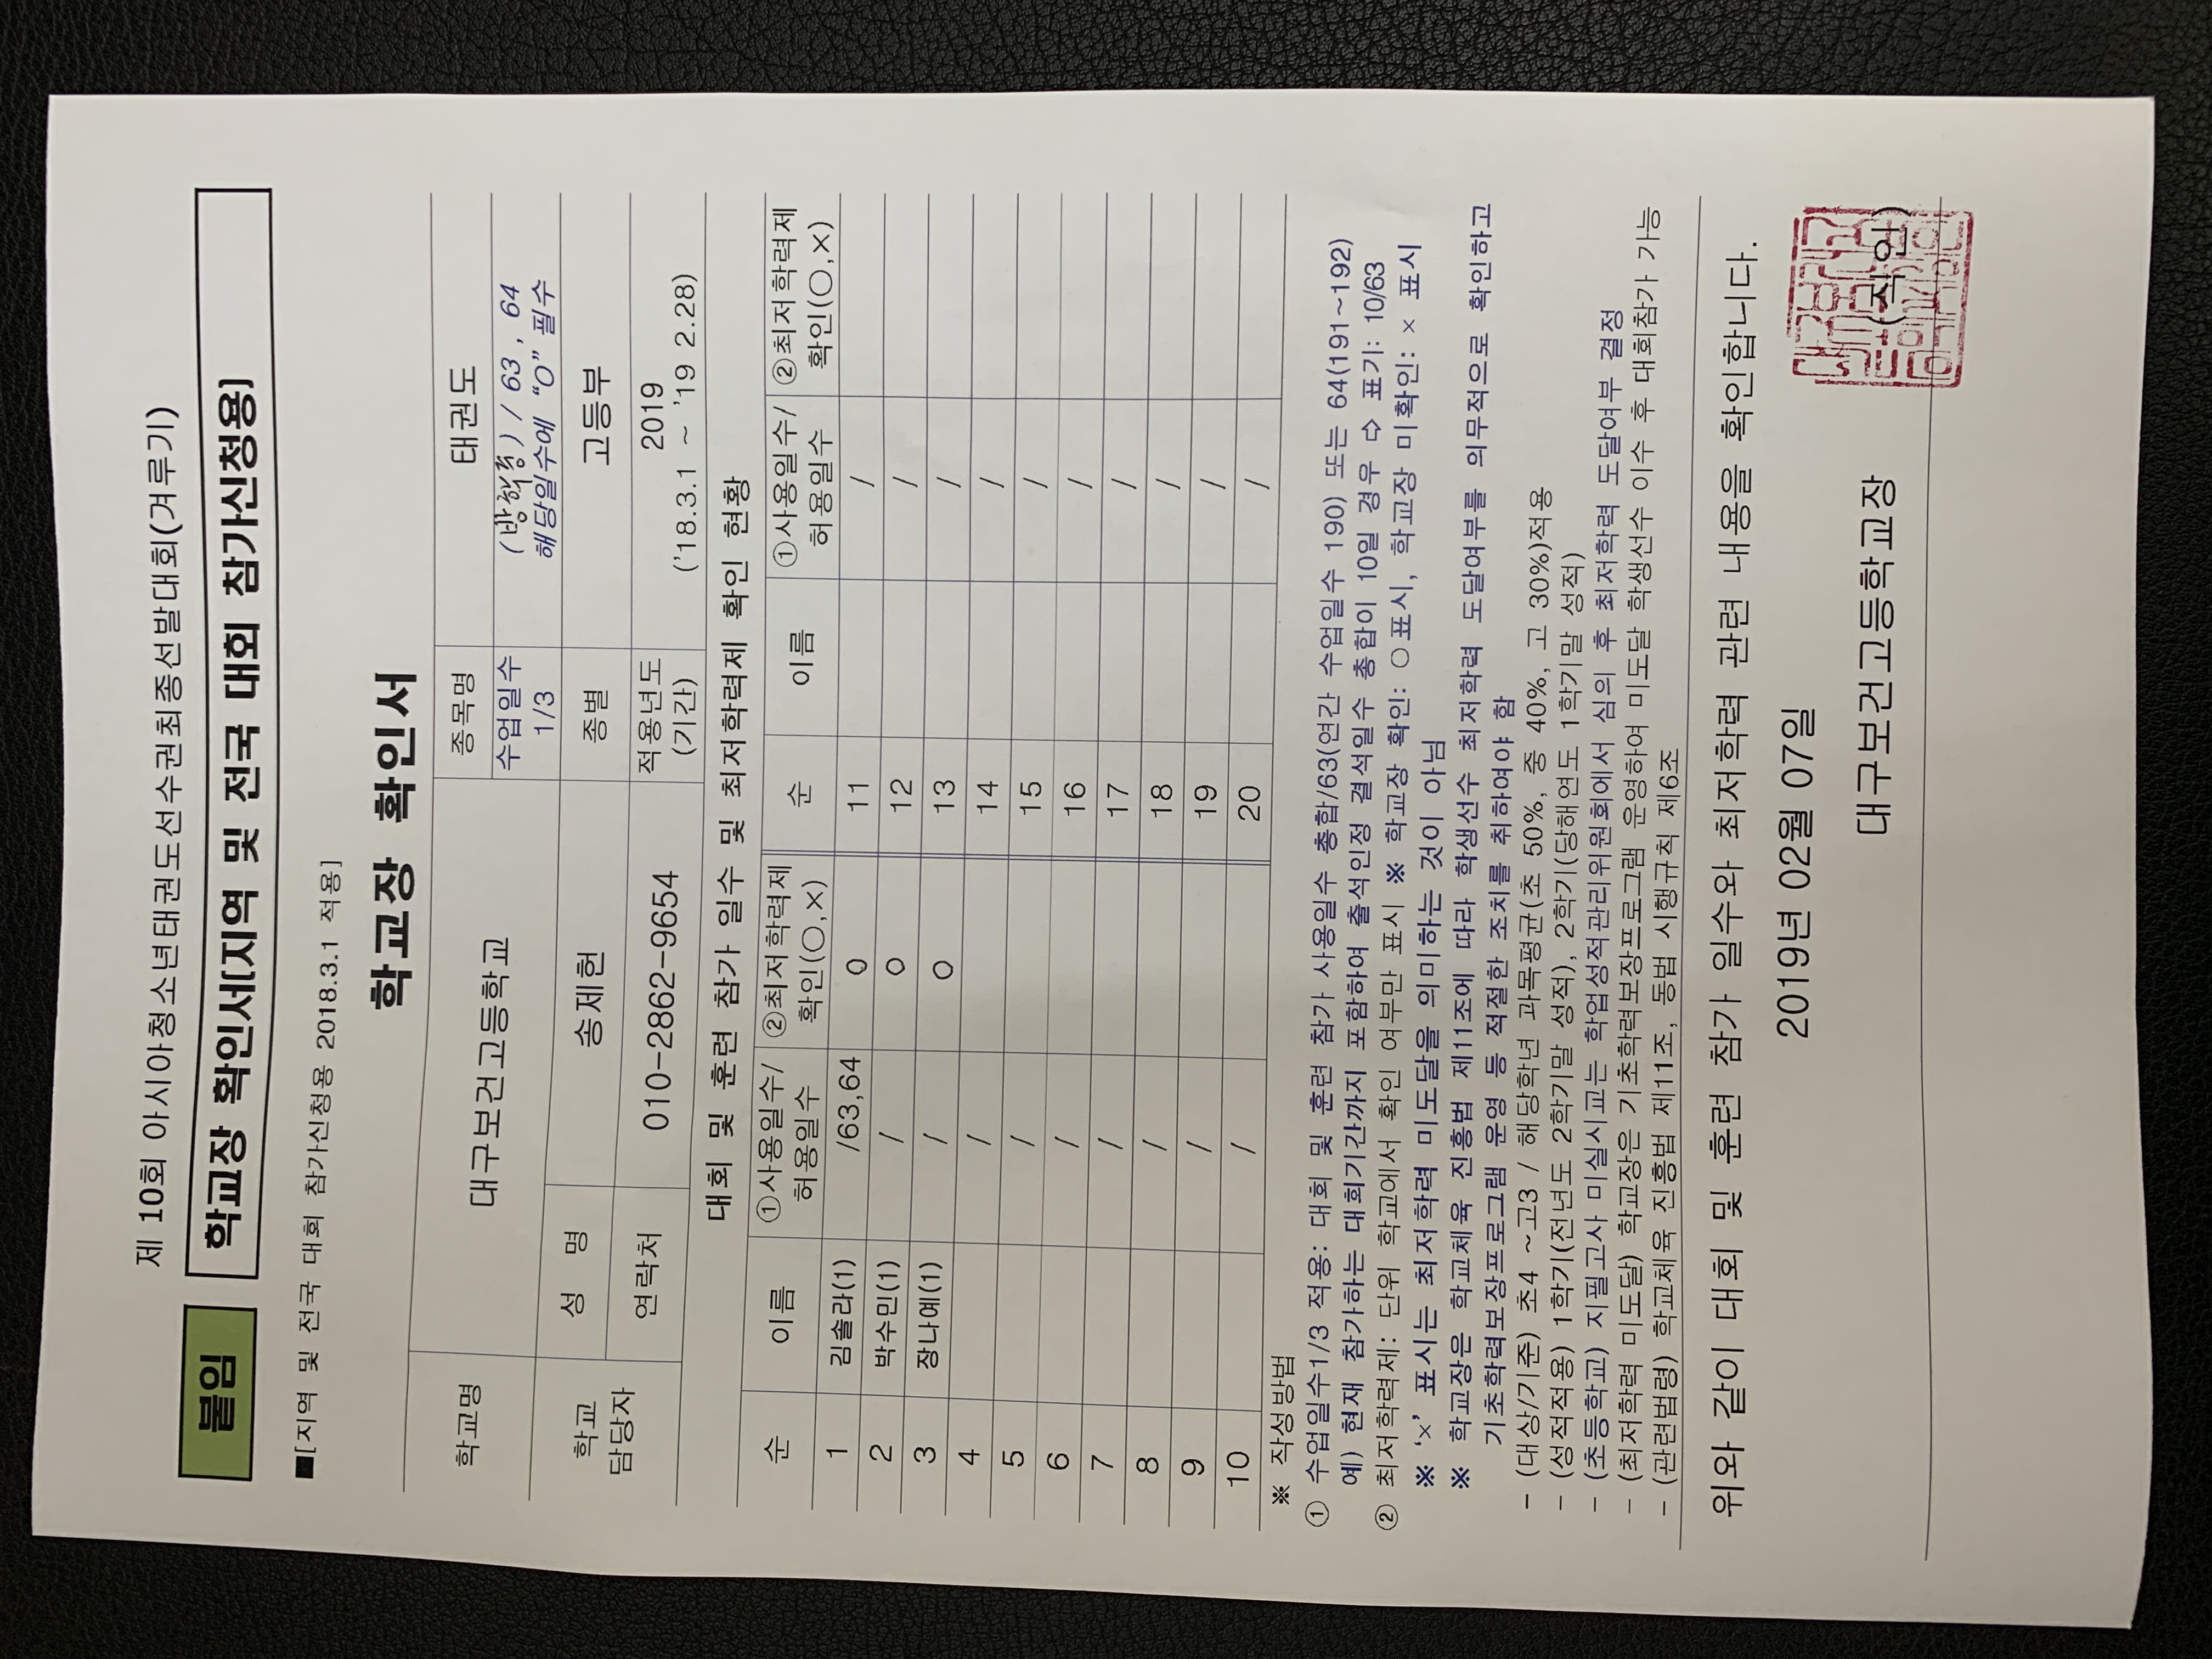 제 10회 아시아청소년태권도선수권최종선발대회(겨루기)
붙임 학교장 확인서[지역 및 전국 대회 참가신청용]
■[지역 및 전국 대회 참가신청용 2018.3.1 적용]
학교장 확인서
학교명 대구보건고등학교 종목명 태권도
수업일수 1/3 (방학중) / 63 , 64
해당일수에 "O" 필수
학교 담당자 성 명 송제헌 종별 고등부
연락처 010-2862-9654 적용년도 (기간) 2019
('18.3.1 ~ '19 2.28)
대회 및 훈련 참가 일수 및 최저학력제 확인 현황
순 이름 ①사용일수/허용일수 ②최저학력제 확인(○,×) 순 이름 ①사용일수/허용일수 ②최저학력제 확인(○,×)
1 김솔라(1) /63,64 O 11 /
2 박수민(1) / O 12 /
3 장나예(1) / O 13 /
4 / 14 /
5 / 15 /
6 / 16 /
7 / 17 /
8 / 18 /
9 / 19 /
10 / 20 /
※ 작성방법
① 수업일수1/3 적용: 대회 및 훈련 참가 사용일수 총합/63(연간 수업일수 190) 또는 64(191~192)
예) 현재 참가하는 대회기간까지 포함하여 출석인정 결석일수 총합이 10일 경우 ⇨ 표기: 10/63
② 최저학력제: 단위 학교에서 확인 여부만 표시 ※ 학교장 확인: ○표시, 학교장 미확인: × 표시
※ '×' 표시는 최저학력 미도달을 의미하는 것이 아님
※ 학교장은 학교체육 진흥법 제11조에 따라 학생선수 최저학력 도달여부를 의무적으로 확인하고
기초학력보장프로그램 운영 등 적절한 조치를 취하여야 함
- (대상/기준) 초4 ~고3 / 해당학년 과목평균(초 50%, 중 40%, 고 30%)적용
- (성적적용) 1학기(전년도 2학기말 성적), 2학기(당해연도 1학기말 성적)
- (초등학교) 지필고사 미실시교는 학업성적관리위원회에서 심의 후 최저학력 도달여부 결정
- (최저학력 미도달) 학교장은 기초학력보장프로그램 운영하여 미도달 학생선수 이수 후 대회참가 가능
- (관련법령) 학교체육 진흥법 제11조, 동법 시행규칙 제6조
위와 같이 대회 및 훈련 참가 일수와 최저학력 관련 내용을 확인합니다.
2019년 02월 07일
대구보건고등학교장 (직인)